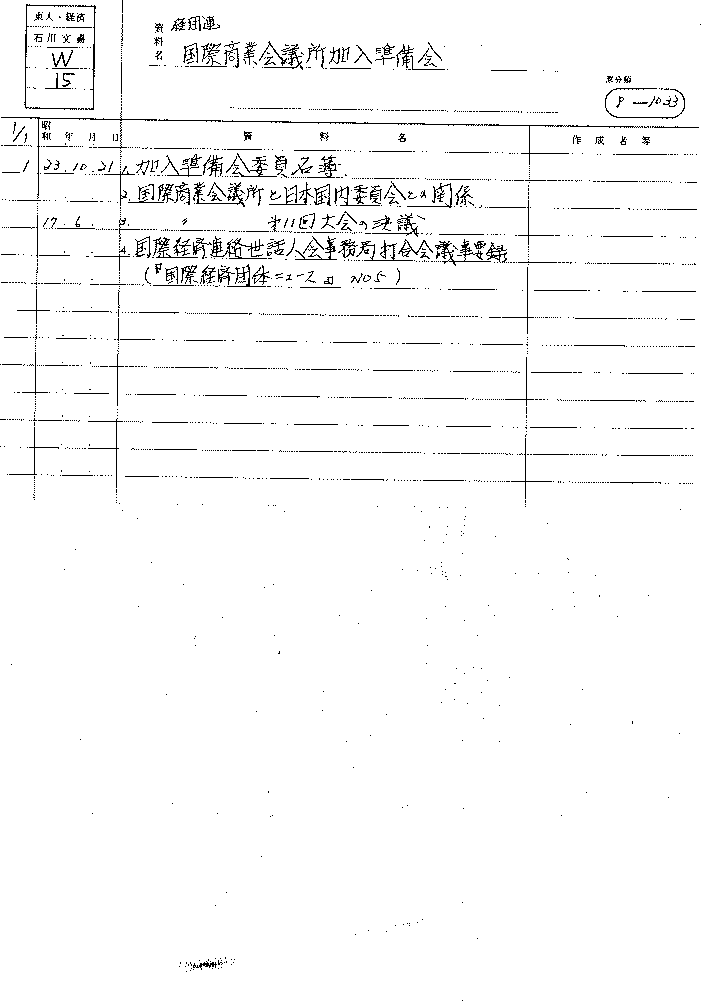 東大・経済
石川文書
W
15
資料名
経団連
国際商業会議所加入準備会
原分類
P-1033
1/1
昭和 年 月 日
資 料 名
作 成 者 等
1 23.10.21 1. 加入準備会委員名簿
2. 国際商業会議所と日本国内委員会との関係
17.6. 3. 〃 第11回大会の決議
4. 国際経済連絡世話人会事務局打合会議事要録
(『国際経済団体ニュース』NO5)